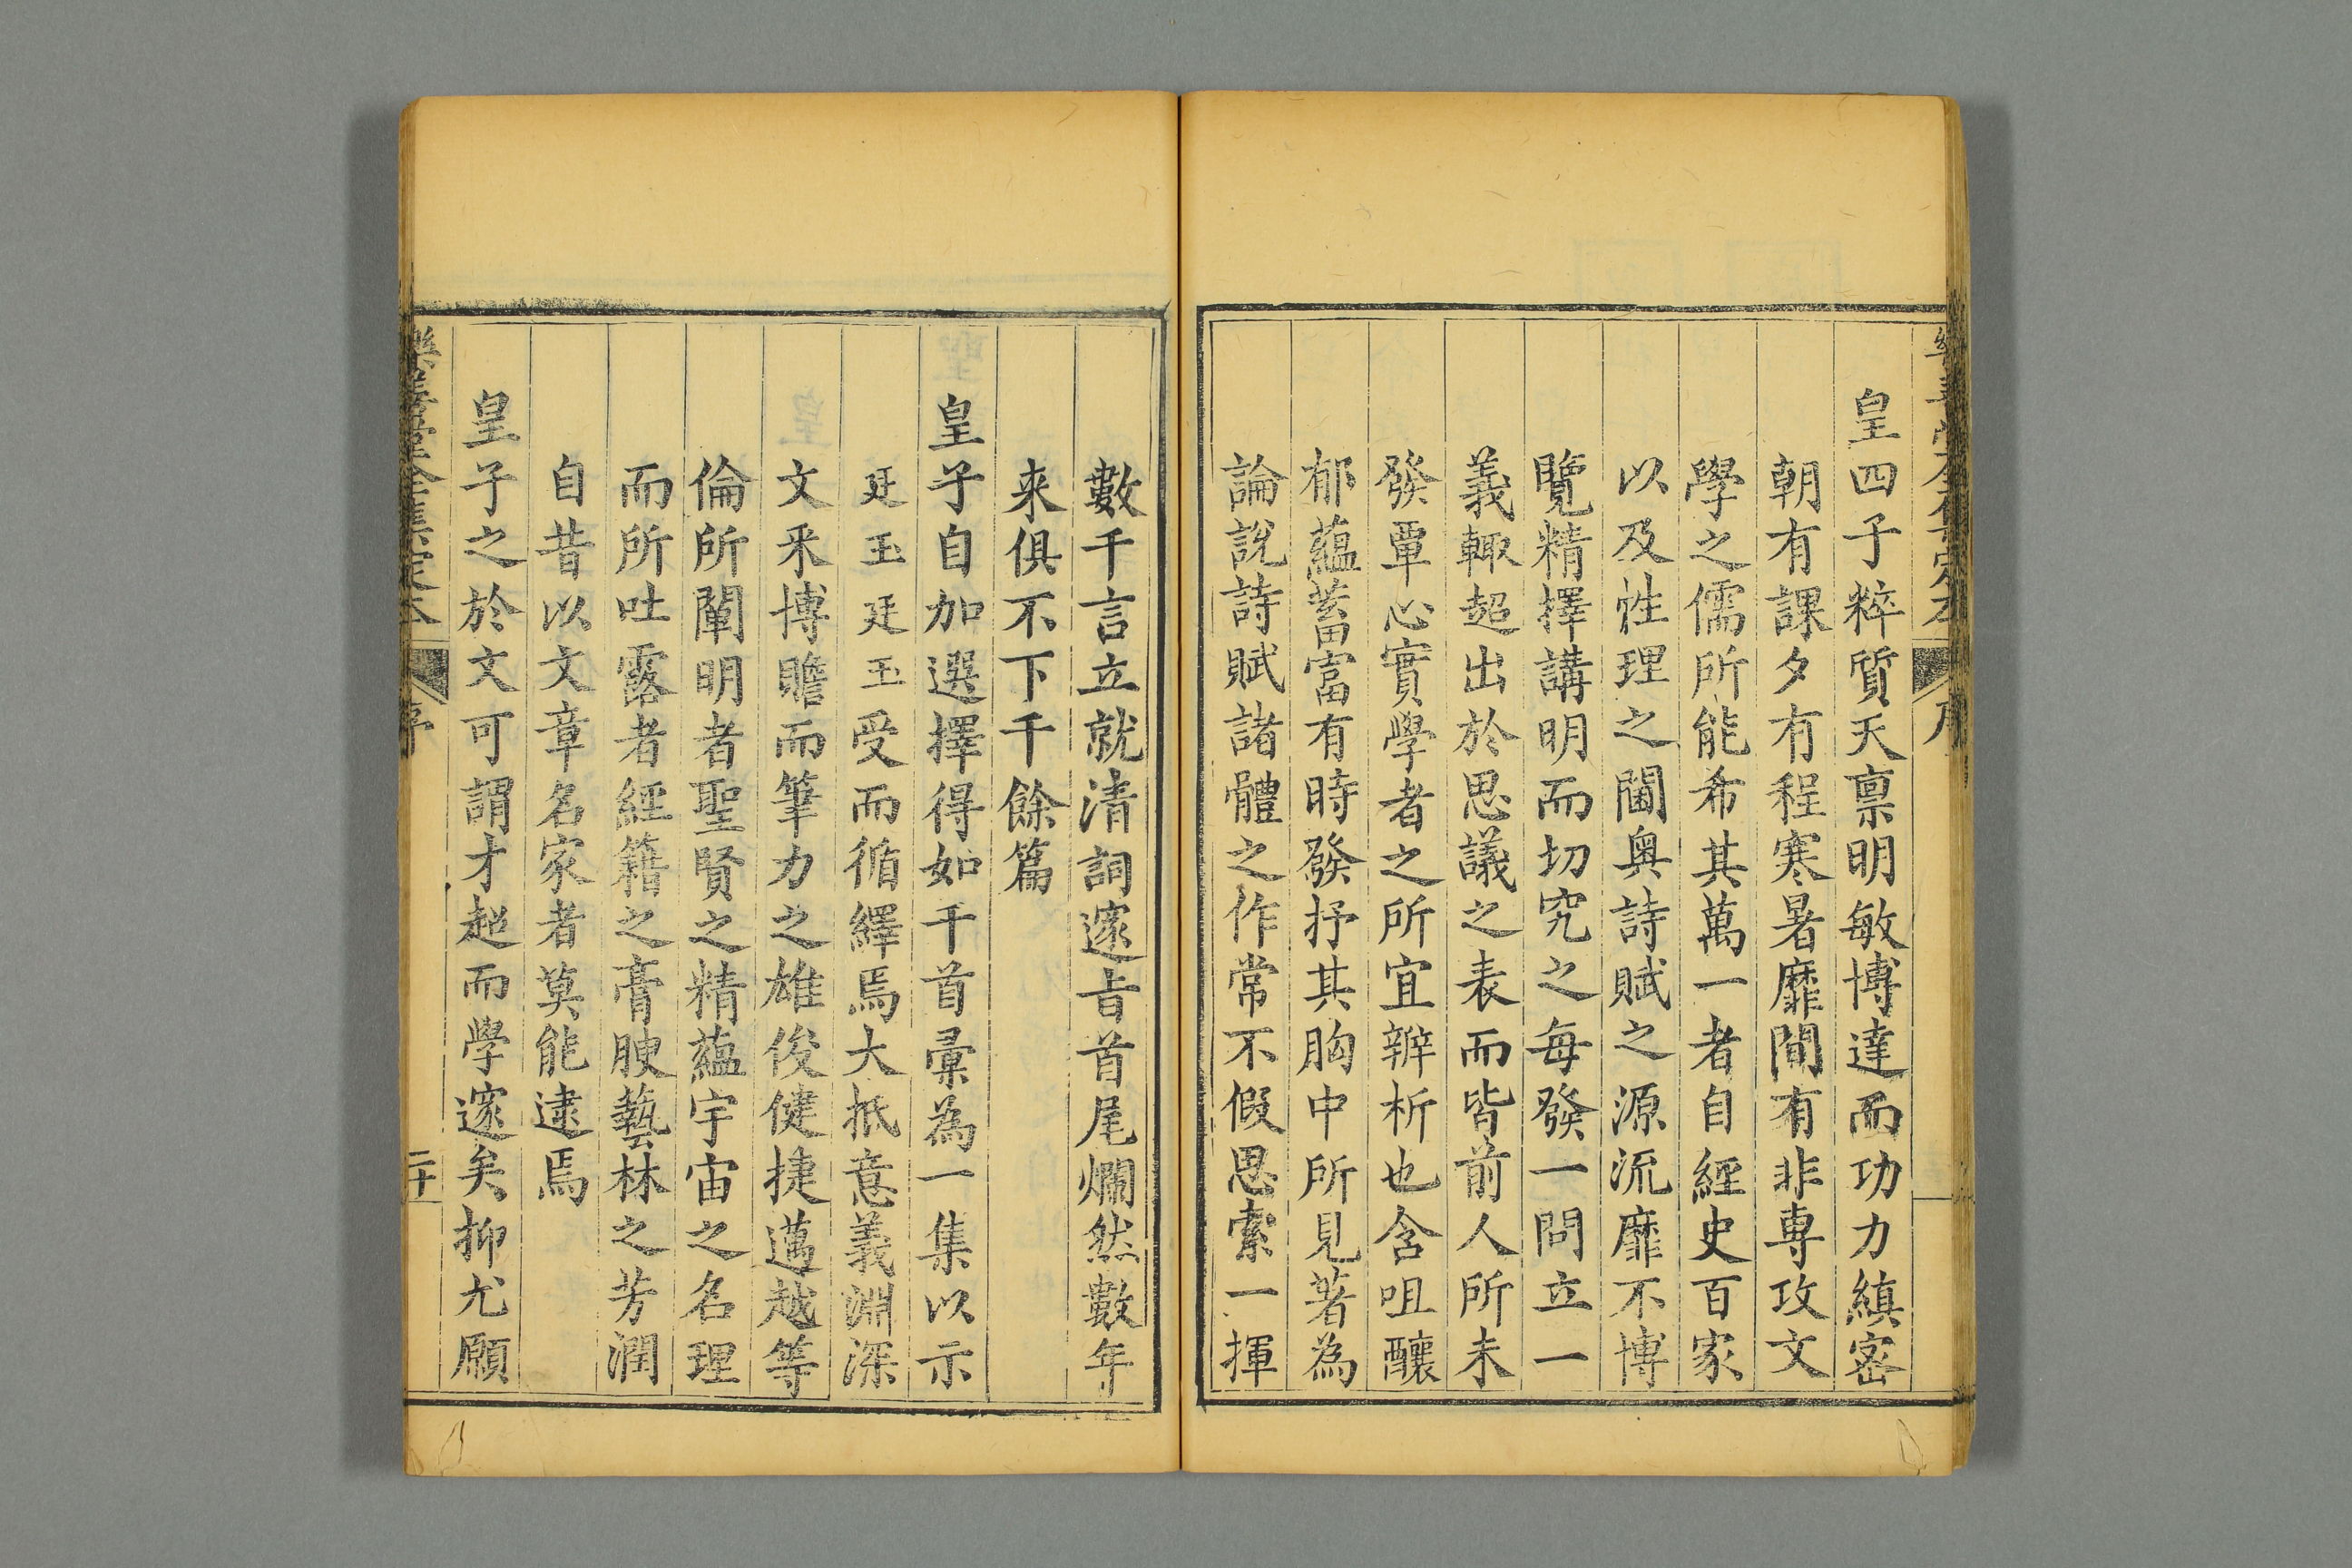 皇四子粹質天禀明敏博達而功力縝密
朝有課夕有程寒暑靡間有非專攻文
學之儒所能希其萬一者自經史百家
以及性理之閫奥詩賦之源流靡不博
覽精擇講明而切究之每發一問立一
義輙超出於思議之表而皆前人所未
發覃心實學者之所宜辨析也含咀釀
郁蘊蓄富有時發抒其胸中所見著為
論說詩賦諸體之作常不假思索一揮
數千言立就清詞邃旨首尾爛然數年
来俱不下千餘篇
皇子自加選擇得如千首彚為一集以示
廷玉廷玉受而循繹焉大抵意義淵深
文采博贍而筆力之雄俊健捷邁越等
倫所闡明者聖賢之精蘊宇宙之名理
而所吐露者經籍之膏腴藝林之芳潤
自昔以文章名家者莫能逮焉
皇子之於文可謂才超而學邃矣抑尤願
樂善堂全集定本 序 二十